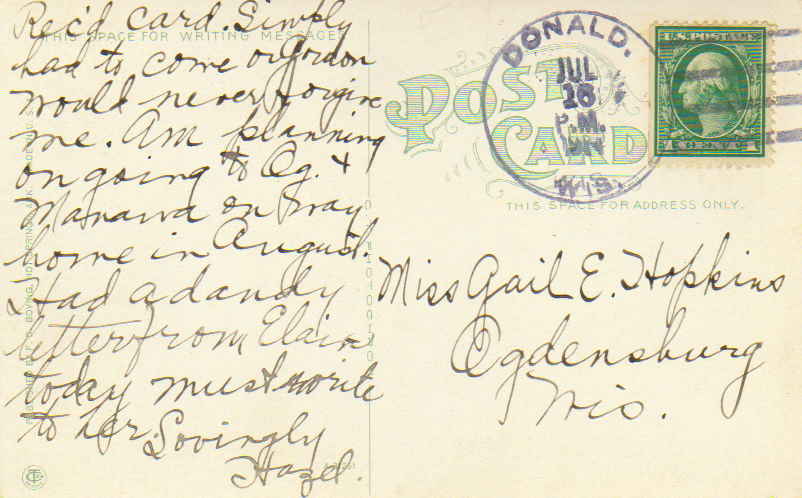 Rec'd card. Simply
had to come or Gordon
would never forgive
me. Am planning
on going to Og. &
Manawa on way
home in August.
Had a dandy
letter from Elaine
today must write
to her. Lovingly
Hazel.
THIS SPACE FOR WRITING MESSAGES
POST
CARD
DONALD.
JUL
16
P.M.
WIS.
U.S. POSTAGE
1 CENT 1
THIS SPACE FOR ADDRESS ONLY.
Miss Gail E. Hopkins
Ogdensburg
Wis.